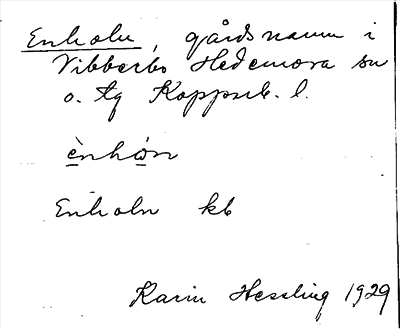 Enholn, gårdsnamn i
Vibberbo Hedemora sn
o. tg Kopparb. l.
ènhòn
Enholn kb
Karin Hessling 1929